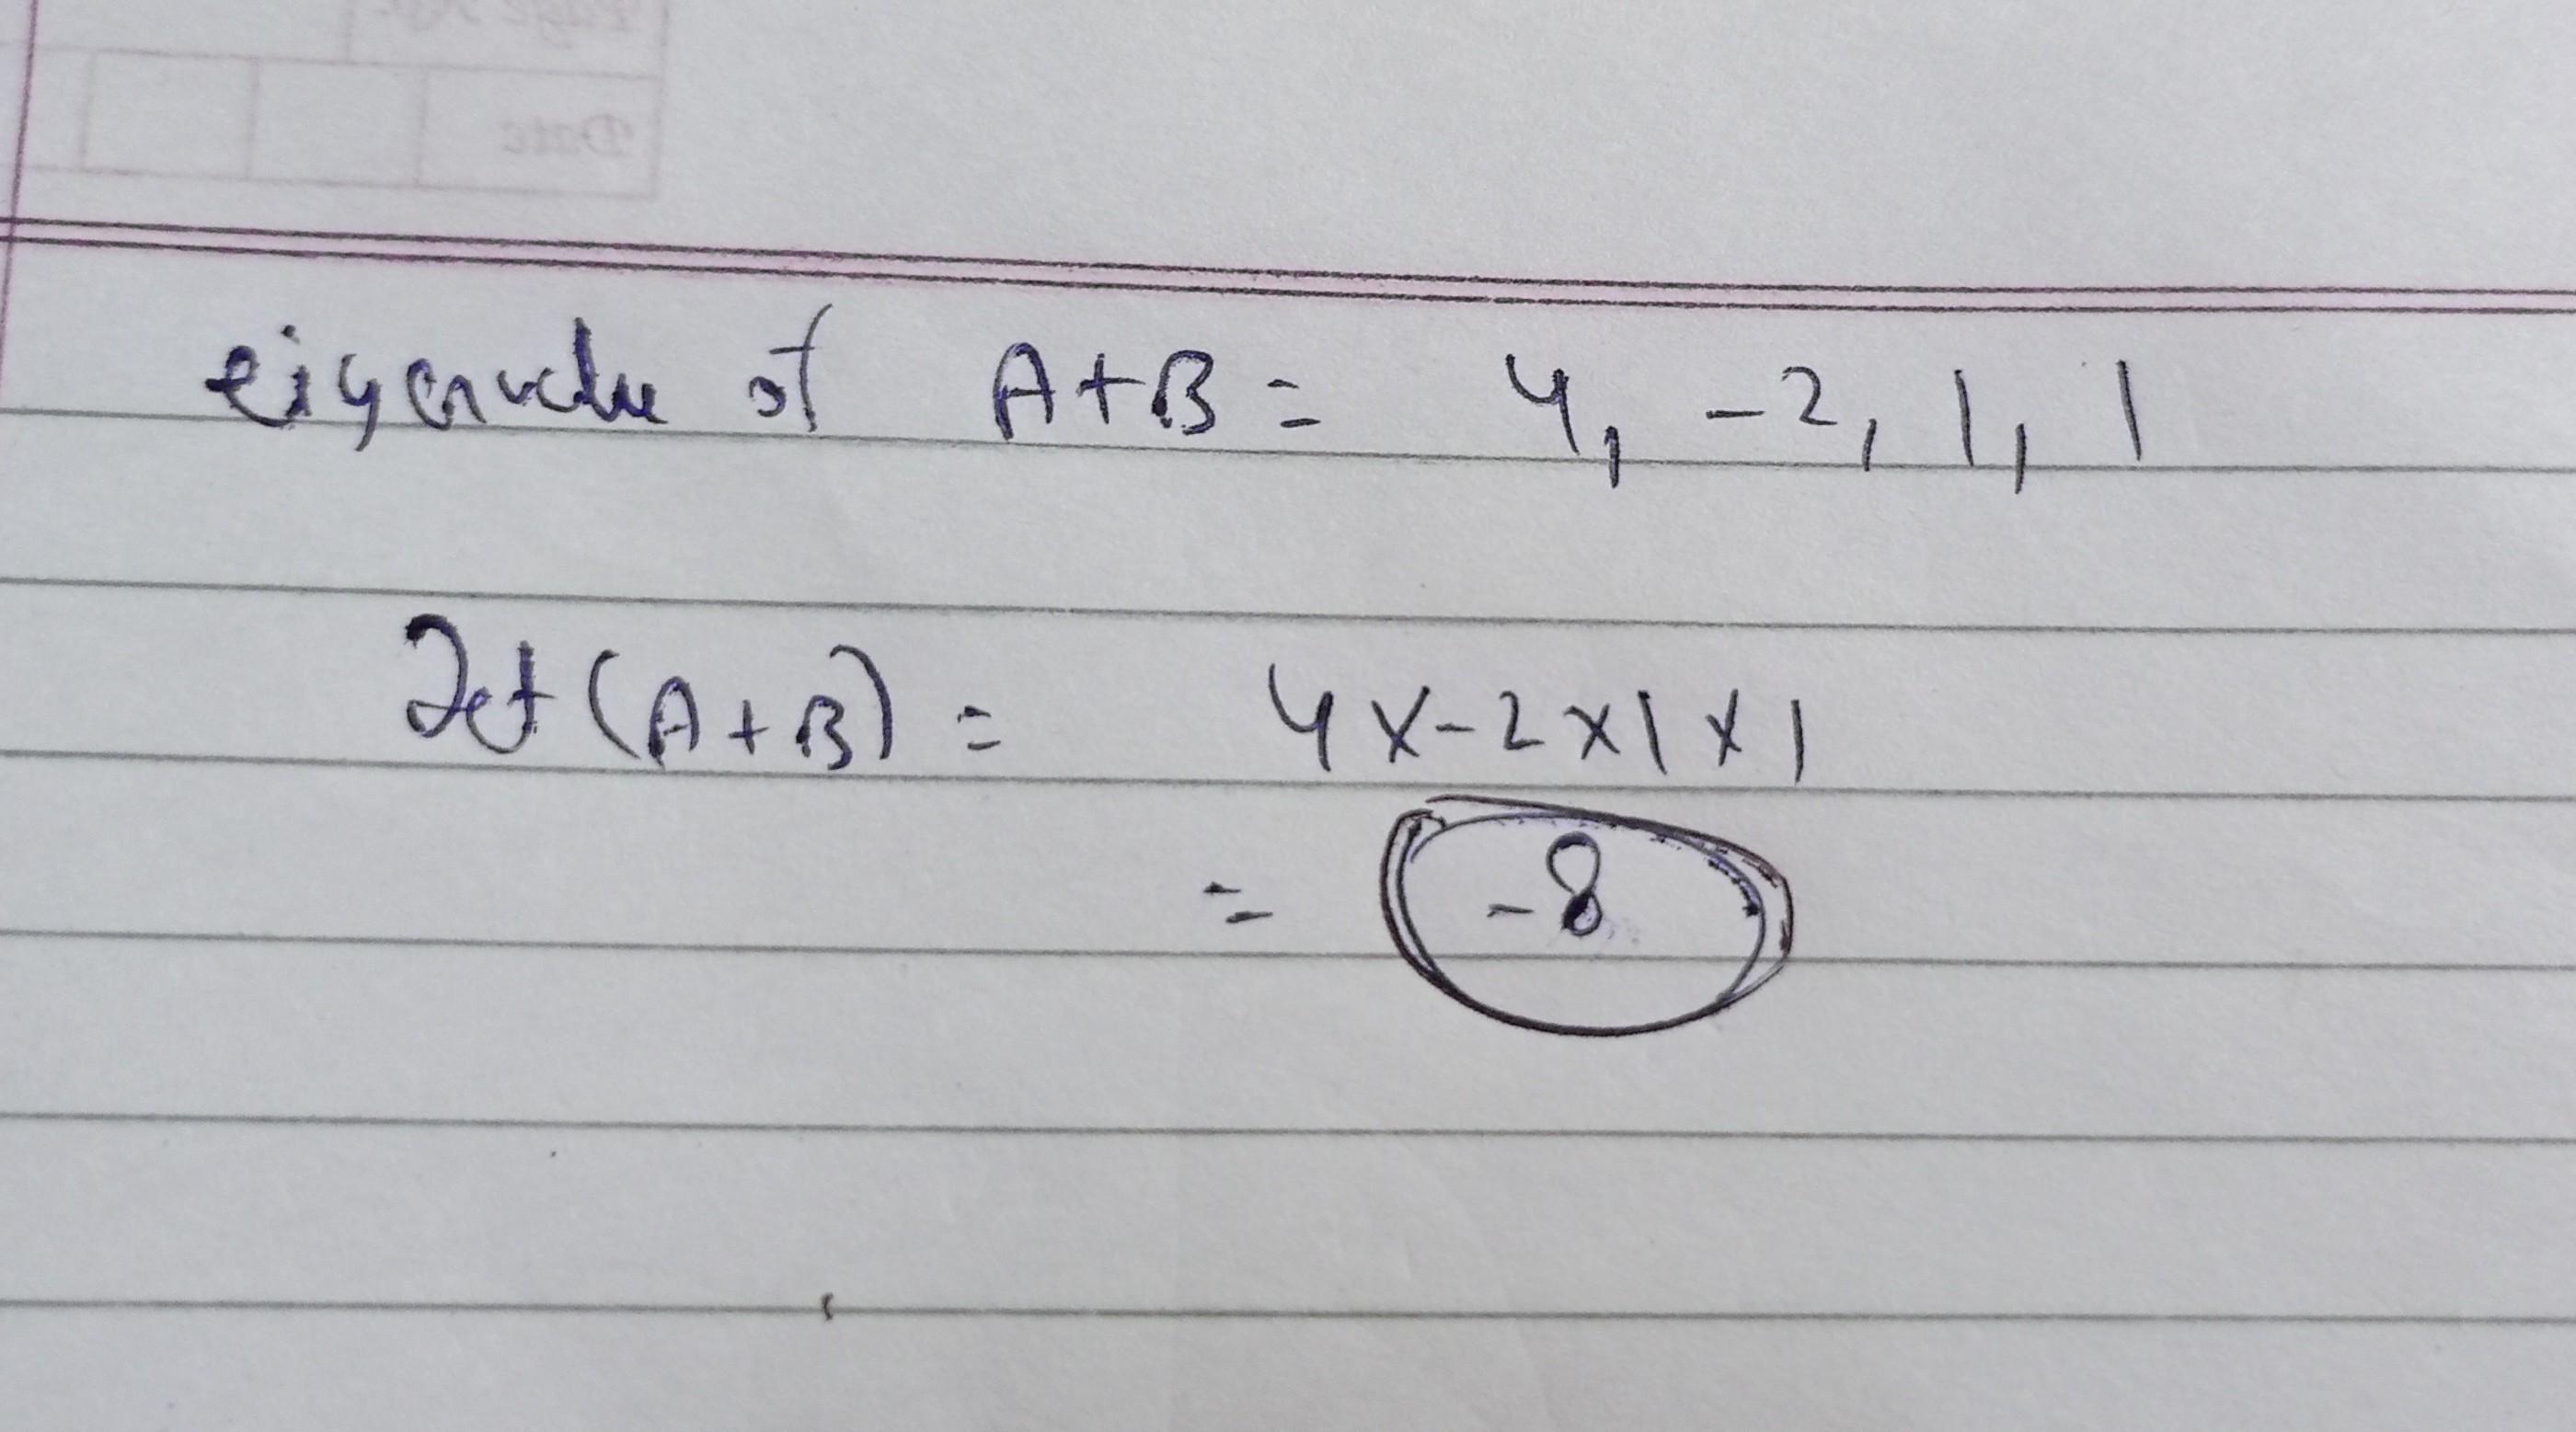 Page No.
Date
eigenvalue of A+B = 4, -2, 1, 1
Det (A+B) = 4 x -2 x 1 x 1
= -8